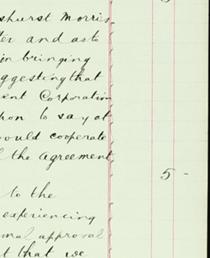 shurst Morris
ter and as to
in bringing
uggesting that
ent Corporation
hon to say at
would cooperate
the Agreement
5 -
to the
experiencing
mal approval
t that we